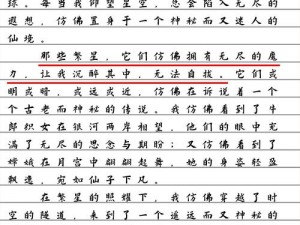 遐想，仿佛置身于一个神秘而又迷人的
仙境。
那些繁星，它们仿佛拥有无尽的魔
力，让我沉醉其中，无法自拔。它们或
明或暗，或远或近，仿佛在诉说着一个
个古老而神秘的传说。我仿佛看到了牛
郎织女在银河两岸相望，他们的眼中充
满了无尽的思念与期盼；又仿佛看到了
嫦娥在月宫中翩翩起舞，她的身姿轻盈
飘逸，宛如仙子下凡。
在繁星的照耀下，我仿佛穿越了时
空的隧道，来到了一个遥远而又神秘的